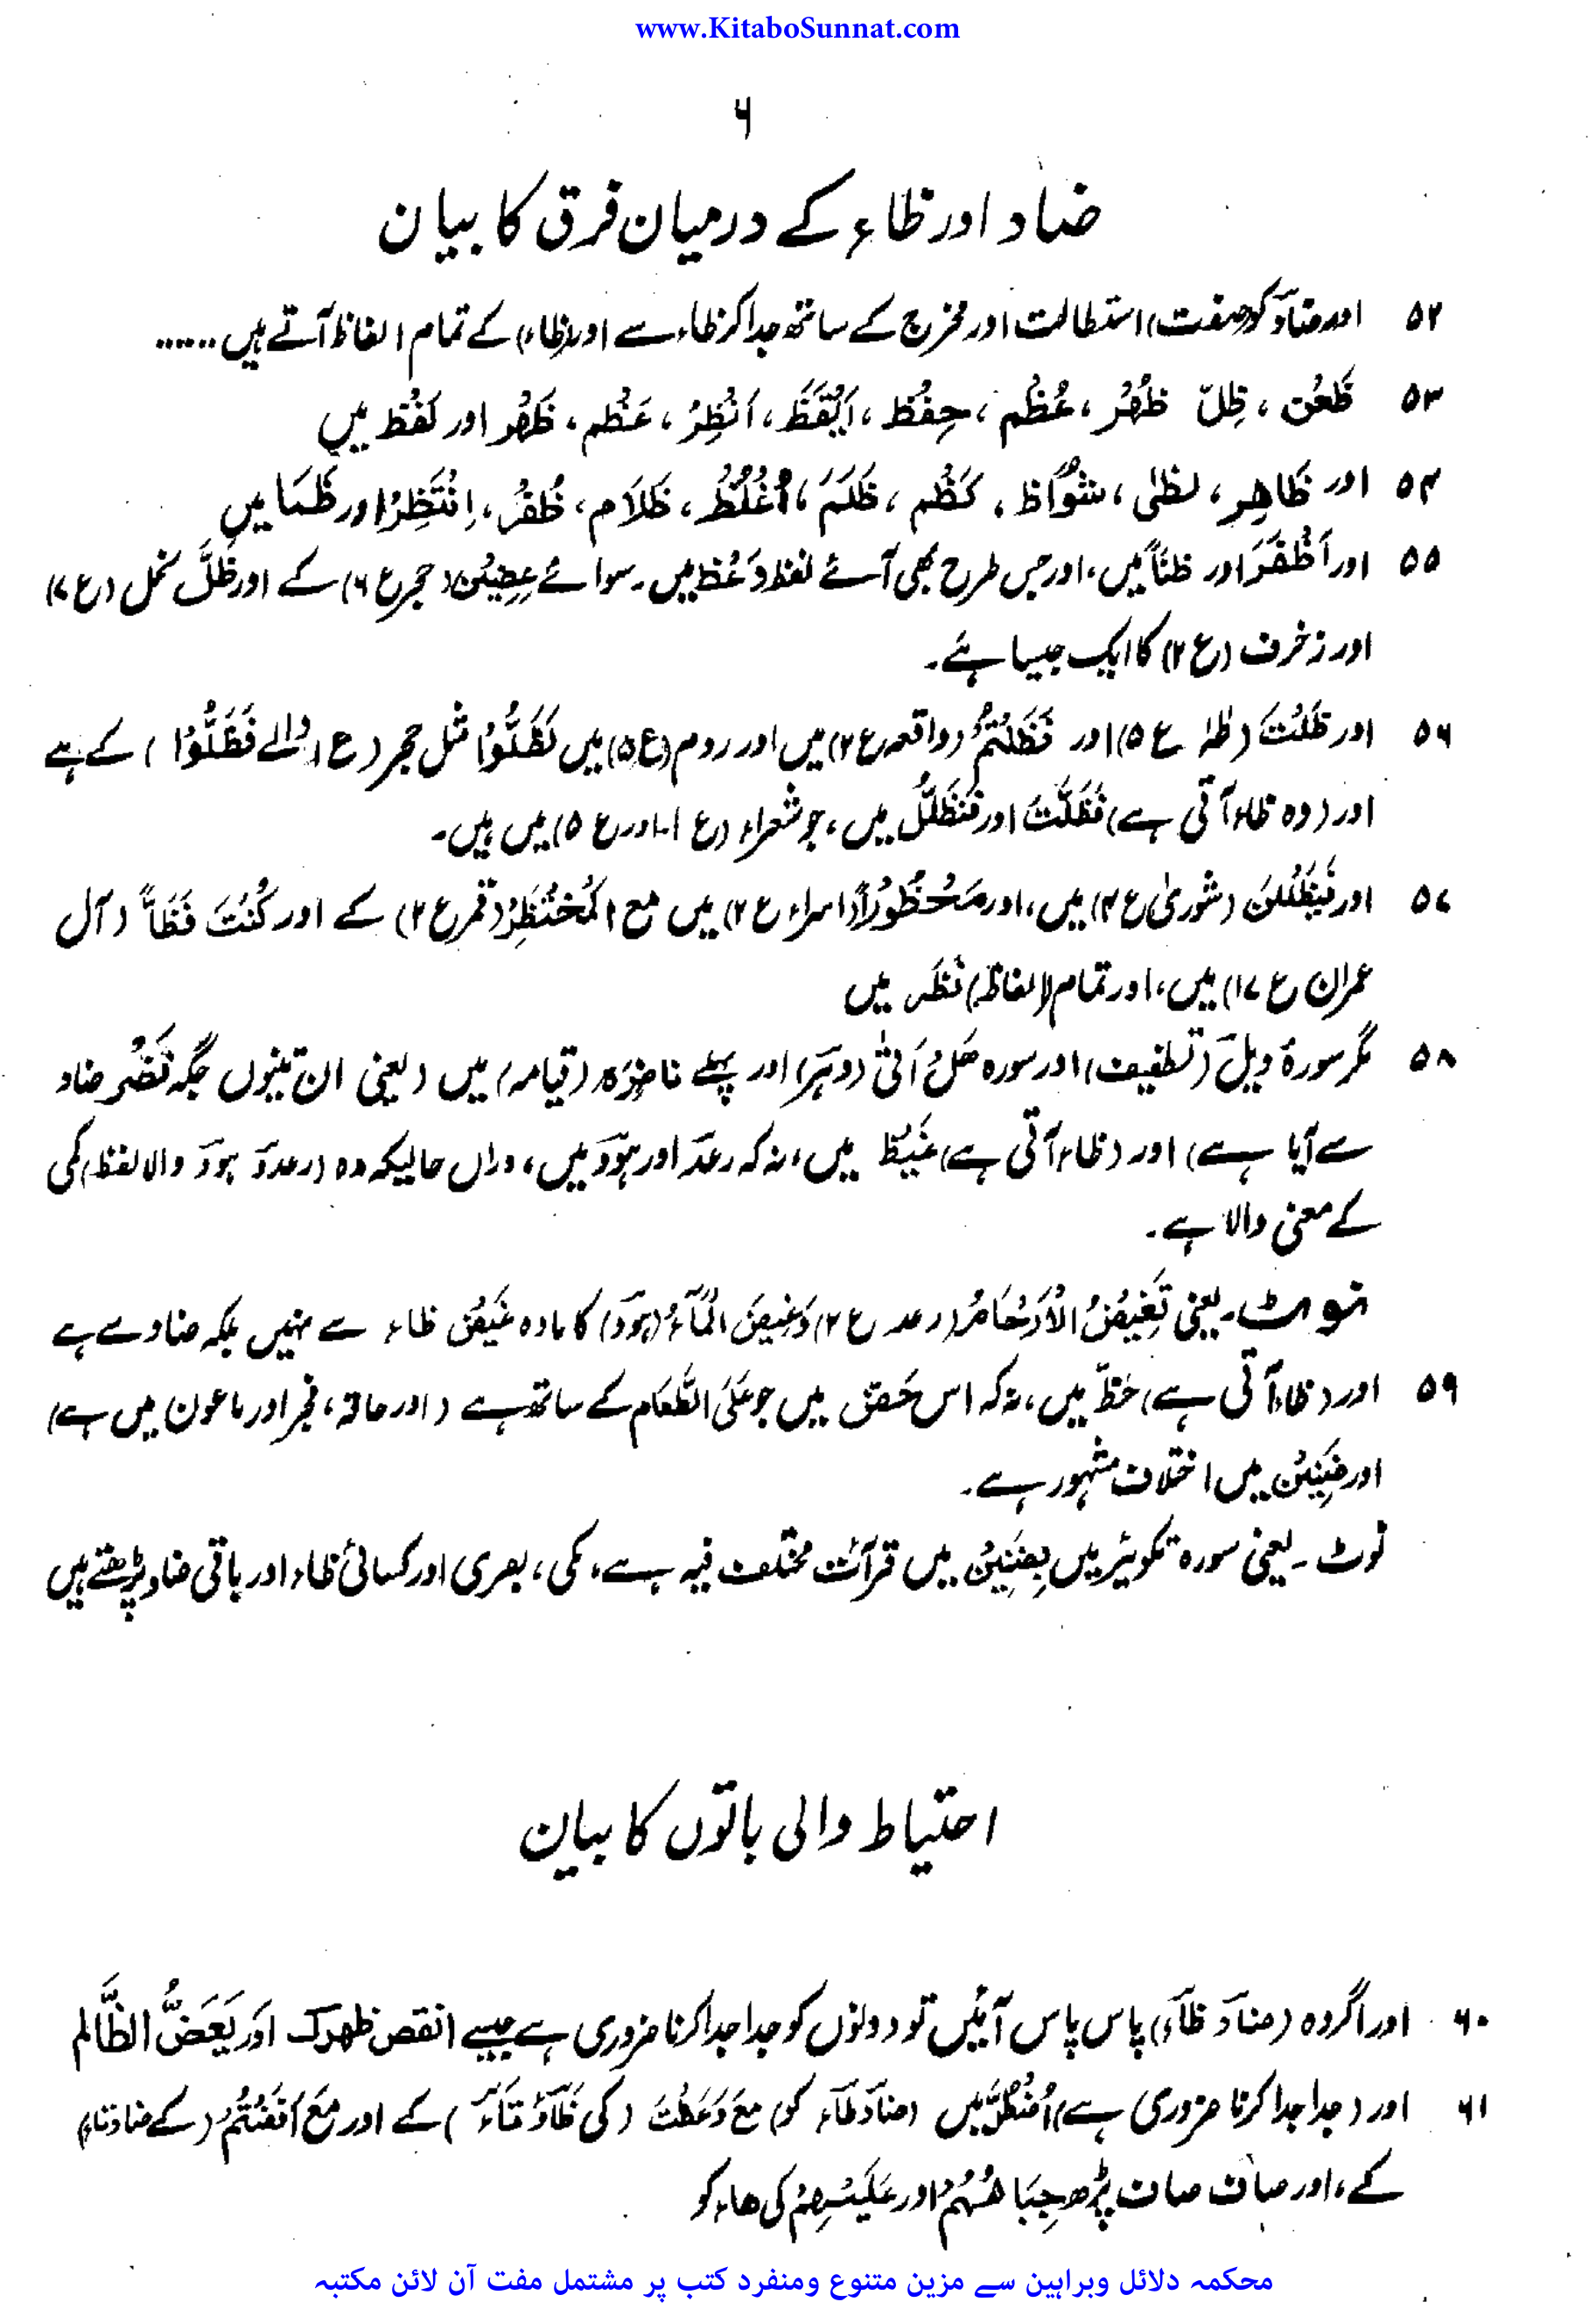 www.KitaboSunnat.com
۶
ضاد اور ظاء کے درمیان فرق کا بیان
۵۲ اور ضاد کو (صفت) استطالت اور مخرج کے ساتھ جدا کر ظاء سے اور (ظاء) کے تمام الفاظ آتے ہیں ......
۵۳ ظَعْن ، ظِلّ ظُهْرُ ، عُظْم ، حِفْظ ، اَیْقَظَ ، اَنْظِرْ ، عَظْم ، ظَهْر اور لَفْظ میں
۵۴ اور ظَاهِر ، لظٰی ، شُوَاظ ، كَظْم ، ظَلَمَ ، اُغْلُظْ ، ظَلَام ، ظُفْرُ ، اِنْتَظِرْ اور ظَمَا میں
۵۵ اور اَظْفَرَ اور ظنًّا میں، اور جس طرح بھی آئے لفظ وَعْظ میں۔ سوائے عِضِیْن (حجر ع ۶) کے اور ظَلَّ نحل (ع ۷)
اور زخرف (ع ۲) کا ایک جیسا ہے۔
۵۶ اور ظَلْتَ (طٰہٰ ع ۵) اور فَظَلْتُمْ (واقعہ ع ۲) میں اور روم (ع ۵) میں لَظَلُّوْا مثل حجر (ع ۱ والے فَظَلُّوْا) کے ہے
اور (وہ ظاء آتی ہے) فَظَلَّتْ اور فَنَظَلُّ میں، جو شعراء (ع ۱ اور ع ۵) میں ہیں۔
۵۷ اور فَیَظْلَلْنَ (شوریٰ ع ۴) میں، اور مَحْظُوْرًا (اسراء ع ۲) میں مع الْمُحْتَظِرْ (قمر ع ۲) کے اور كُنْتَ فَظًّا (آل
عمران ع ۱۷) میں، اور تمام (الفاظ) نَظَر میں
۵۸ مگر سورۂ ویل (تطفیف) اور سورہ هَلْ اَتٰی (دہر) اور پہلے ناضِرَه (قیامہ) میں (یعنی ان تینوں جگہ نَضْر ضاد
سے آیا ہے) اور (ظاء آتی ہے) غَیْظ میں، نہ کہ رعد اور ہود میں، دراں حالیکہ وہ (رعد و ہود والا لفظ) کمی
کے معنی والا ہے۔
نوٹ۔ یعنی تَغِیْضُ الْاَرْحَامُ (رعد ع ۲) وَغِیْضَ الْمَآءُ (ہود) کا مادہ غَیْضٌ ظاء سے نہیں بلکہ ضاد سے ہے
۵۹ اور (ظاء آتی ہے) حَظّ میں، نہ کہ اس حَضّ میں جو عَلَی الطَّعَام کے ساتھ ہے (اور حاقہ، فجر اور ماعون میں ہے)
اور ضَنِیْن میں اختلاف مشہور ہے۔
نوٹ۔ یعنی سورہ تکویر میں بِضَنِیْن میں قرآت مختلف فیہ ہے، مکی، بصری اور کسائی ظاء اور باقی ضاد پڑھتے ہیں
احتیاط والی باتوں کا بیان
۶۰ اور اگر وہ (ضاد و ظاء) پاس پاس آئیں تو دونوں کو جدا جدا کرنا ضروری ہے جیسے انقض ظهرك اور یَعَضُّ الظَّالِم
۶۱ اور (جدا جدا کرنا ضروری ہے) اُضْطُرَّ میں (ضاد و طاء کو) مع وَعَظْتَ (کی ظاء و تاء) کے اور مع اَفَضْتُمْ (کے ضاد و تاء)
کے، اور صاف صاف پڑھ جِبَاهُهُمْ اور عَلَیْهِمْ کی ھاء کو
محکمہ دلائل وبراہین سے مزین متنوع ومنفرد کتب پر مشتمل مفت آن لائن مکتبہ